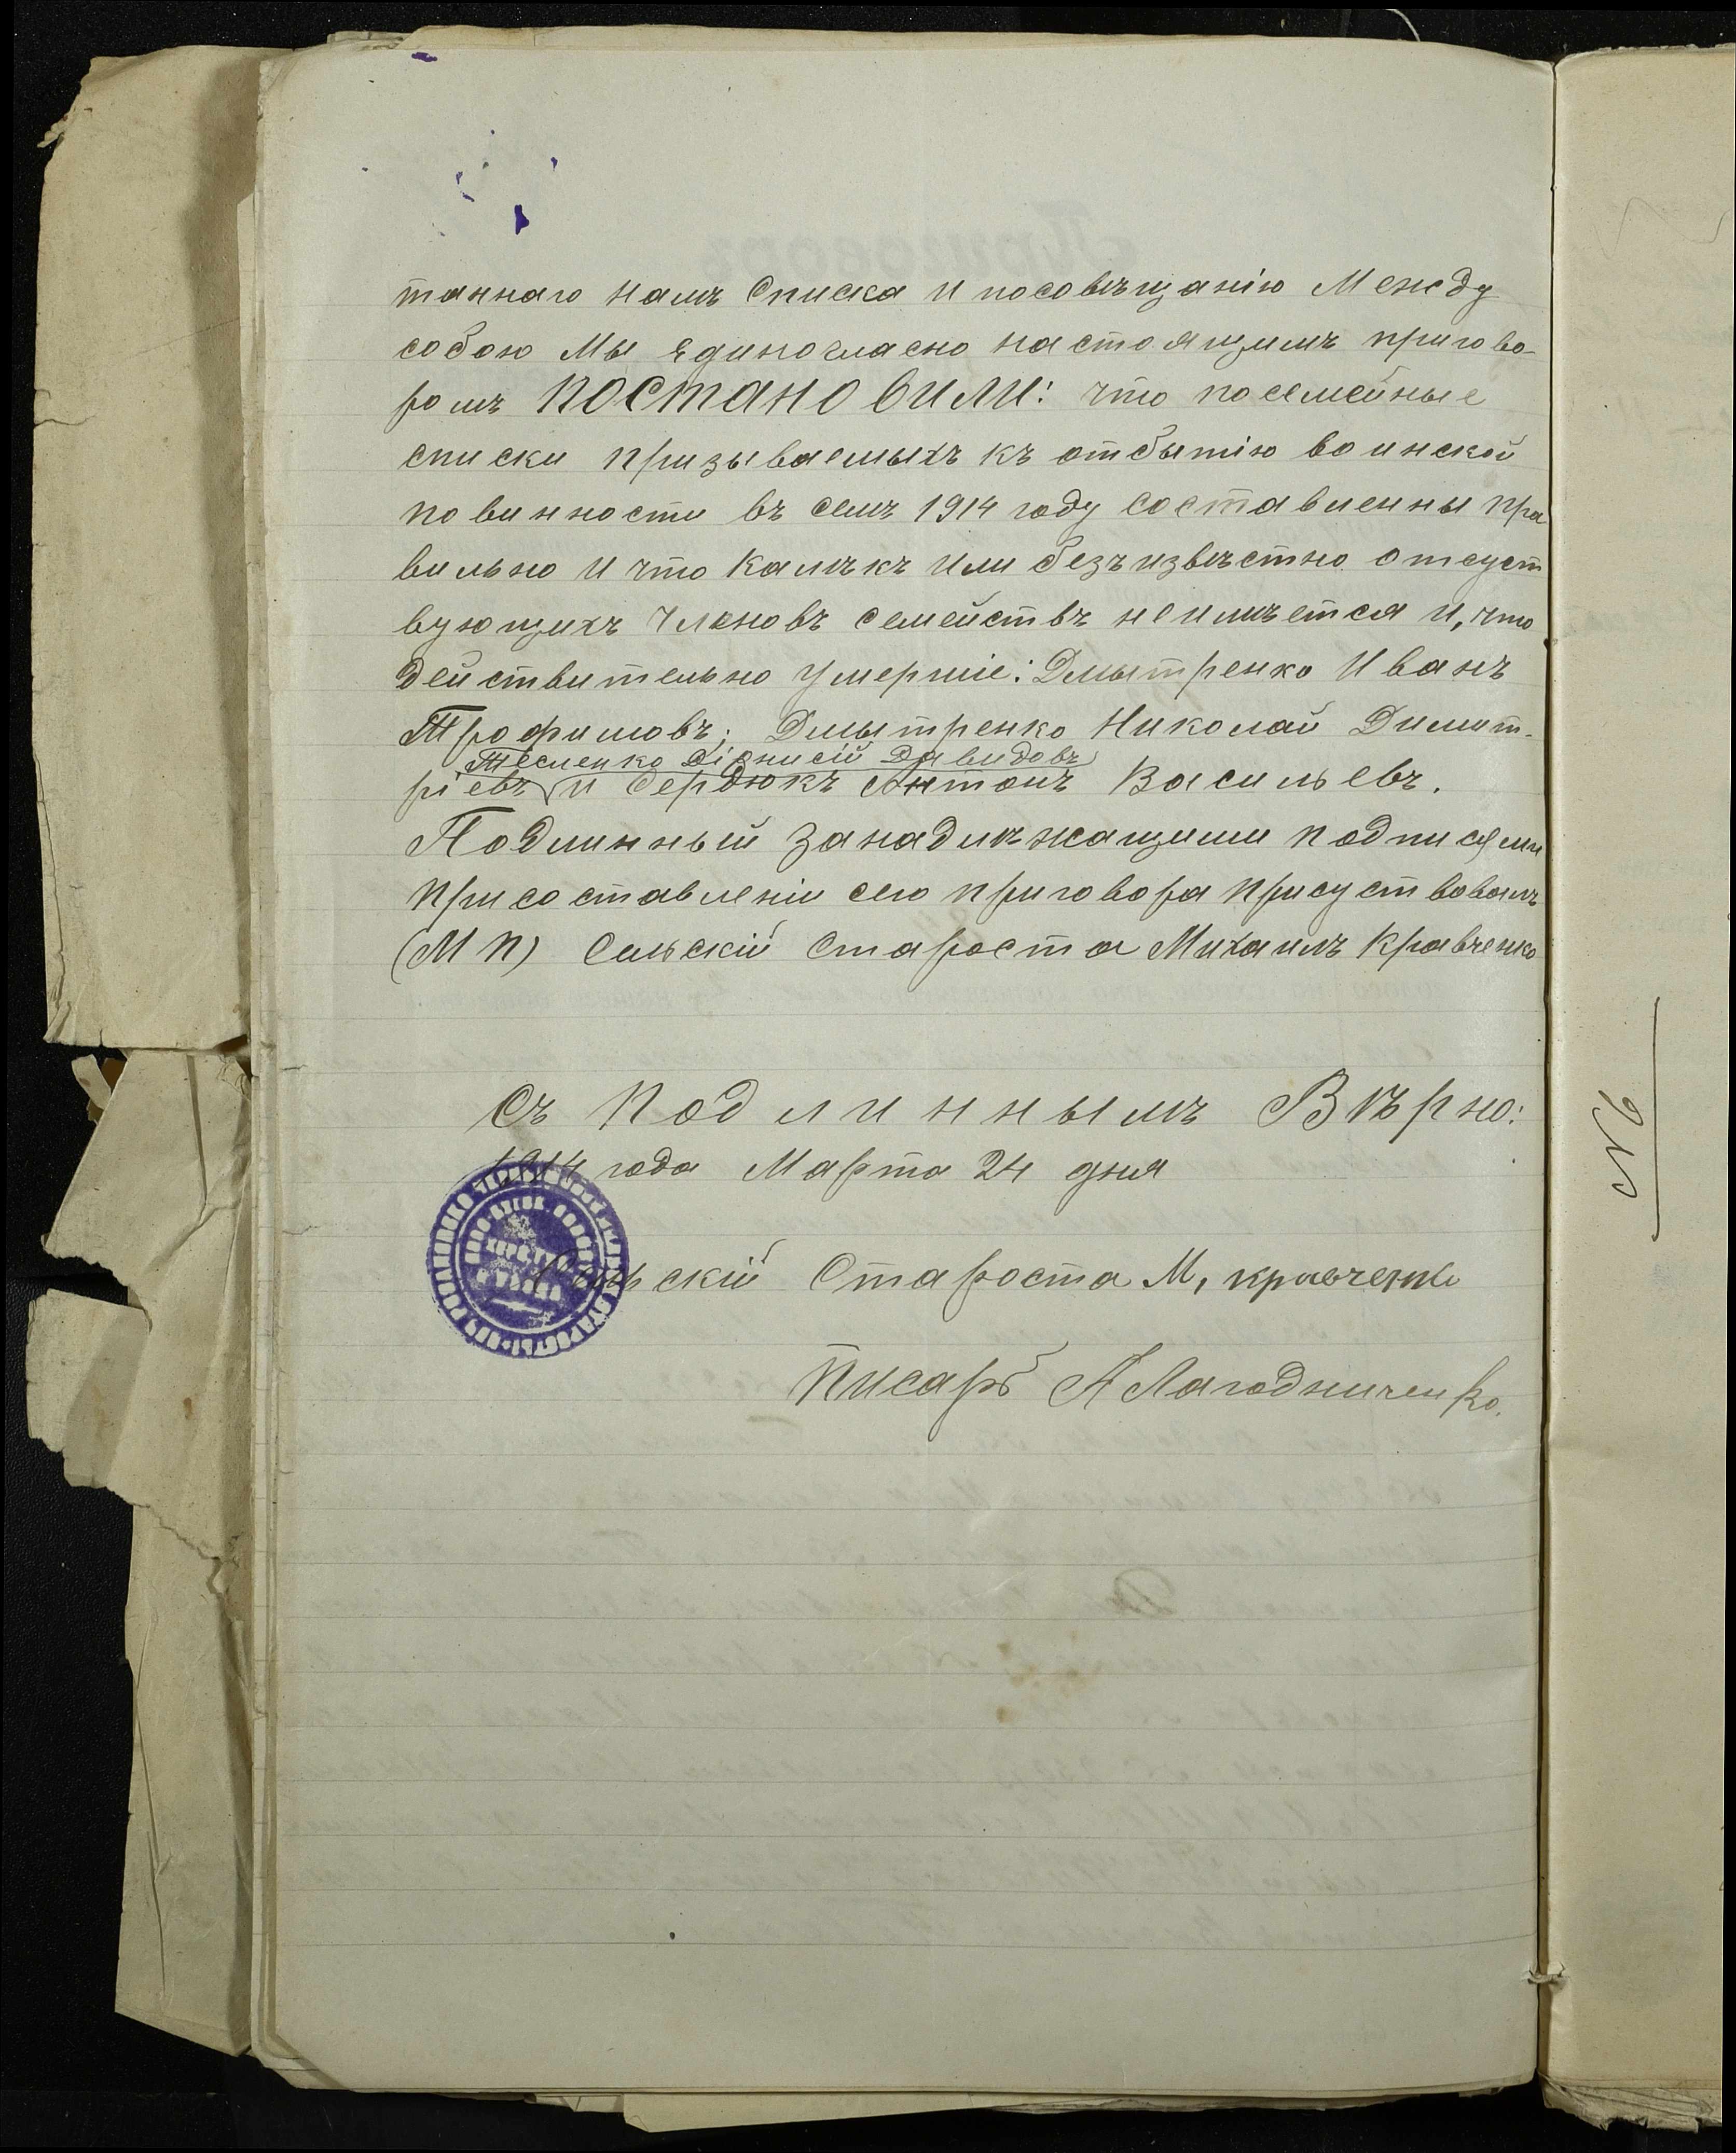 таннаго намъ Списка и посовѣщанію Между
собою Мы единогласно настоящимъ пригово-
ромъ ПОСТАНОВИЛИ: что посемейные
списки призываемыхъ къ отбытію воинской
повинности въ семъ 1914 году составленны пра
вильно и что Калѣкъ или безъизвѣстно отсуст
вующихъ Членовъ семействъ неимѣется и, что
действительно умершіе: Дмытренко Иванъ
Трофимовъ; Дмытренко Николай Димит-
Тесленко Діонисій Давидовъ
ріевъ и Сердюкъ Антонъ Васильевъ.
Подлинный занадлѣжащими подписями
при составленіи сего приговора присуствовалъ
(М П) Сельскій Староста Михаилъ Кравченко
Съ Подлиннымъ Вѣрно:
1914 года Марта 24 дня
Сельскій Староста М, кравченко
Писарь А Лагодниченко.